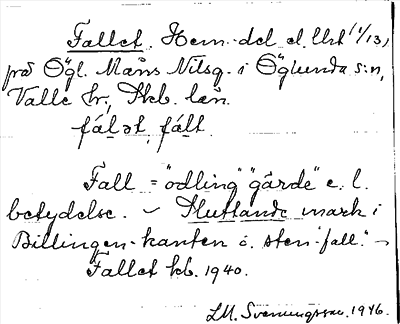 Fallet. Hem.-del el. Urt (1/13)
på Ögl. Måns Nilsg. i Öglunda s:n,
Valle hr, Skb. län.
fálət, fált.
Fall = "odling" "gärde" e. l.
betydelse. – Sluttande mark i
Billingen-kanten ö. sten-"fall". –
Fallet kb. 1940.
LM. Svenungsson. 1946.